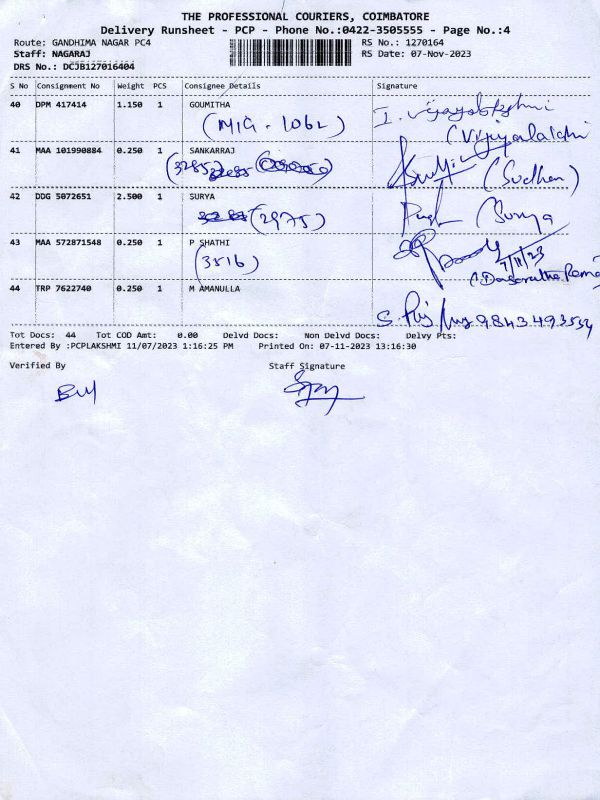 THE PROFESSIONAL COURIERS, COIMBATORE
Delivery Runsheet - PCP - Phone No.:0422-3505555 - Page No.:4
Route: GANDHIMA NAGAR PC4 RS No.: 1270164
Staff: NAGARAJ RS Date: 07-Nov-2023
DRS No.: DCJB127016404
S No Consignment No Weight PCS Consignee Details Signature
40 DPM 417414 1.150 1 GOUMITHA I. Vijayalakshmi
(MIG - 1062) (Vijiyalalchi
41 MAA 101990884 0.250 1 SANKARRAJ
(3285) (Sudhan)
42 DDG 5072651 2.500 1 SURYA Surya
(2975)
43 MAA 572871548 0.250 1 P SHATHI
(3516) 7/11/23
44 TRP 7622740 0.250 1 M AMANULLA
S. 9843493534
Tot Docs: 44 Tot COD Amt: 0.00 Delvd Docs: Non Delvd Docs: Delvy Pts:
Entered By :PCPLAKSHMI 11/07/2023 1:16:25 PM Printed On: 07-11-2023 13:16:30
Verified By Staff Signature